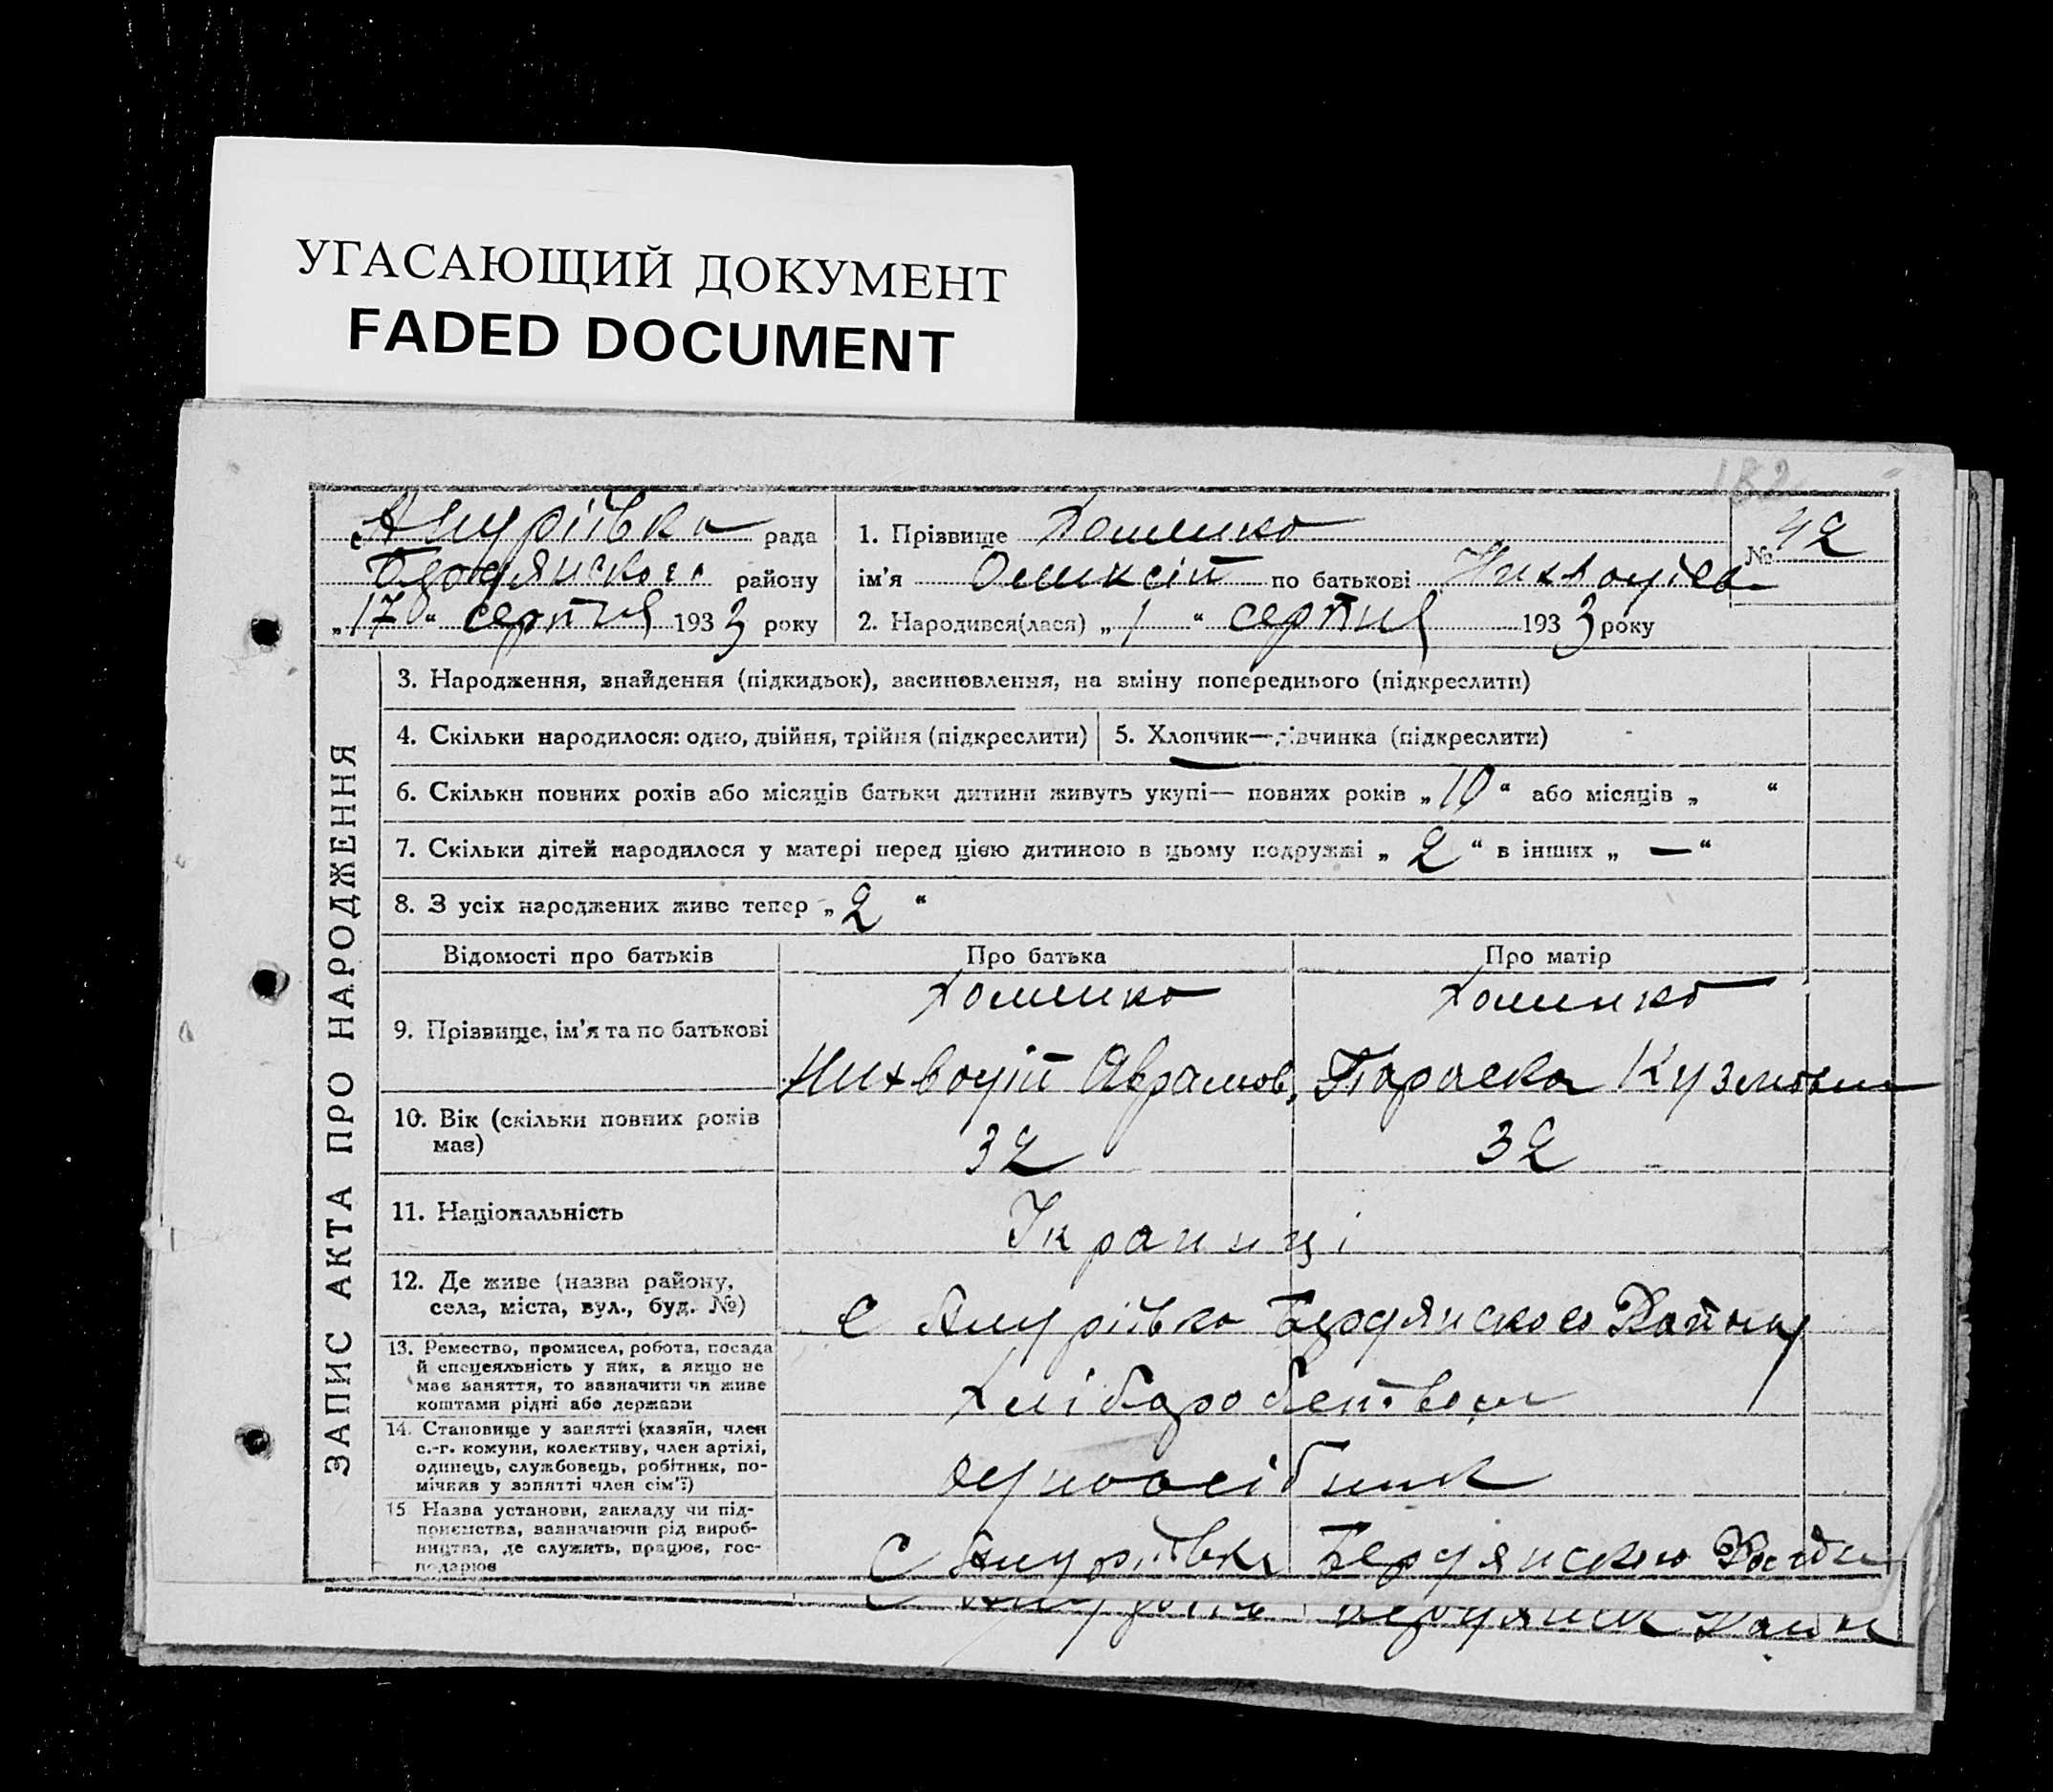 УГАСАЮЩИЙ ДОКУМЕНТ
FADED DOCUMENT
132
с Ануріївка рада
Бердянского району
„17“ серпня 1933 року
1. Прізвище Хоменко
№ 42
ім'я Оликсій по батькові
2. Народився(лася) „1“ серпня 1933 року
ЗАПИС АКТА ПРО НАРОДЖЕННЯ
3. Народження, знайдення (підкидьок), засиновлення, на зміну попереднього (підкреслити)
4. Скільки народилося: одно, двійня, трійня (підкреслити)
5. Хлопчик—дівчинка (підкреслити)
6. Скільки повних років або місяців батьки дитини живуть укупі— повних років „10“ або місяців „ “
7. Скільки дітей народилося у матері перед цією дитиною в цьому подружжі „2“ в інших „—“
8. З усіх народжених живе тепер „2“
Відомості про батьків
Про батька
Про матір
9. Прізвище, ім'я та по батькові
Хоменко
Хоменко
Аврамов.
Параска Кузмовна
10. Вік (скільки повних років
має)
32
32
11. Національність
Украинці
12. Де живе (назва району,
села, міста, вул., буд. №)
с Ануріївка Бердянского Району
13. Ремество, промисел, робота, посада
й спецеяльність у них, а якщо не
має заняття, то зазначити чи живе
коштами рідні або держави
14. Становище у занятті (хазяїн, член
с.-г. комуни, колективу, член артілі,
одинець, службовець, робітник, по-
мічник у занятті член сім'ї)
одноосібник
15 Назва установи, закладу чи під-
приємства, зазначаючи рід вироб-
ництва, де служить, працює, гос-
подарює
с Анурівка Бердянского